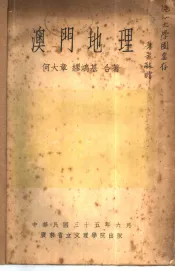 澳門地理
何大章 繆鴻基 合著
中華民國三十五年六月
廣東省立文理學院出版
大學圖書